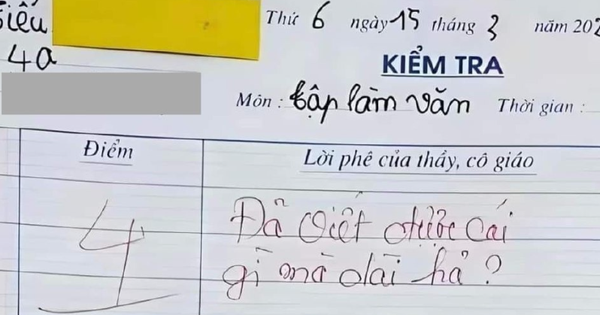 Hiếu Thứ 6 ngày 15 tháng 3 năm 202
4a KIỂM TRA
Môn : tập làm văn Thời gian :
Điểm Lời phê của thầy, cô giáo
4 Đã viết được cái
gì mà dài hả ?